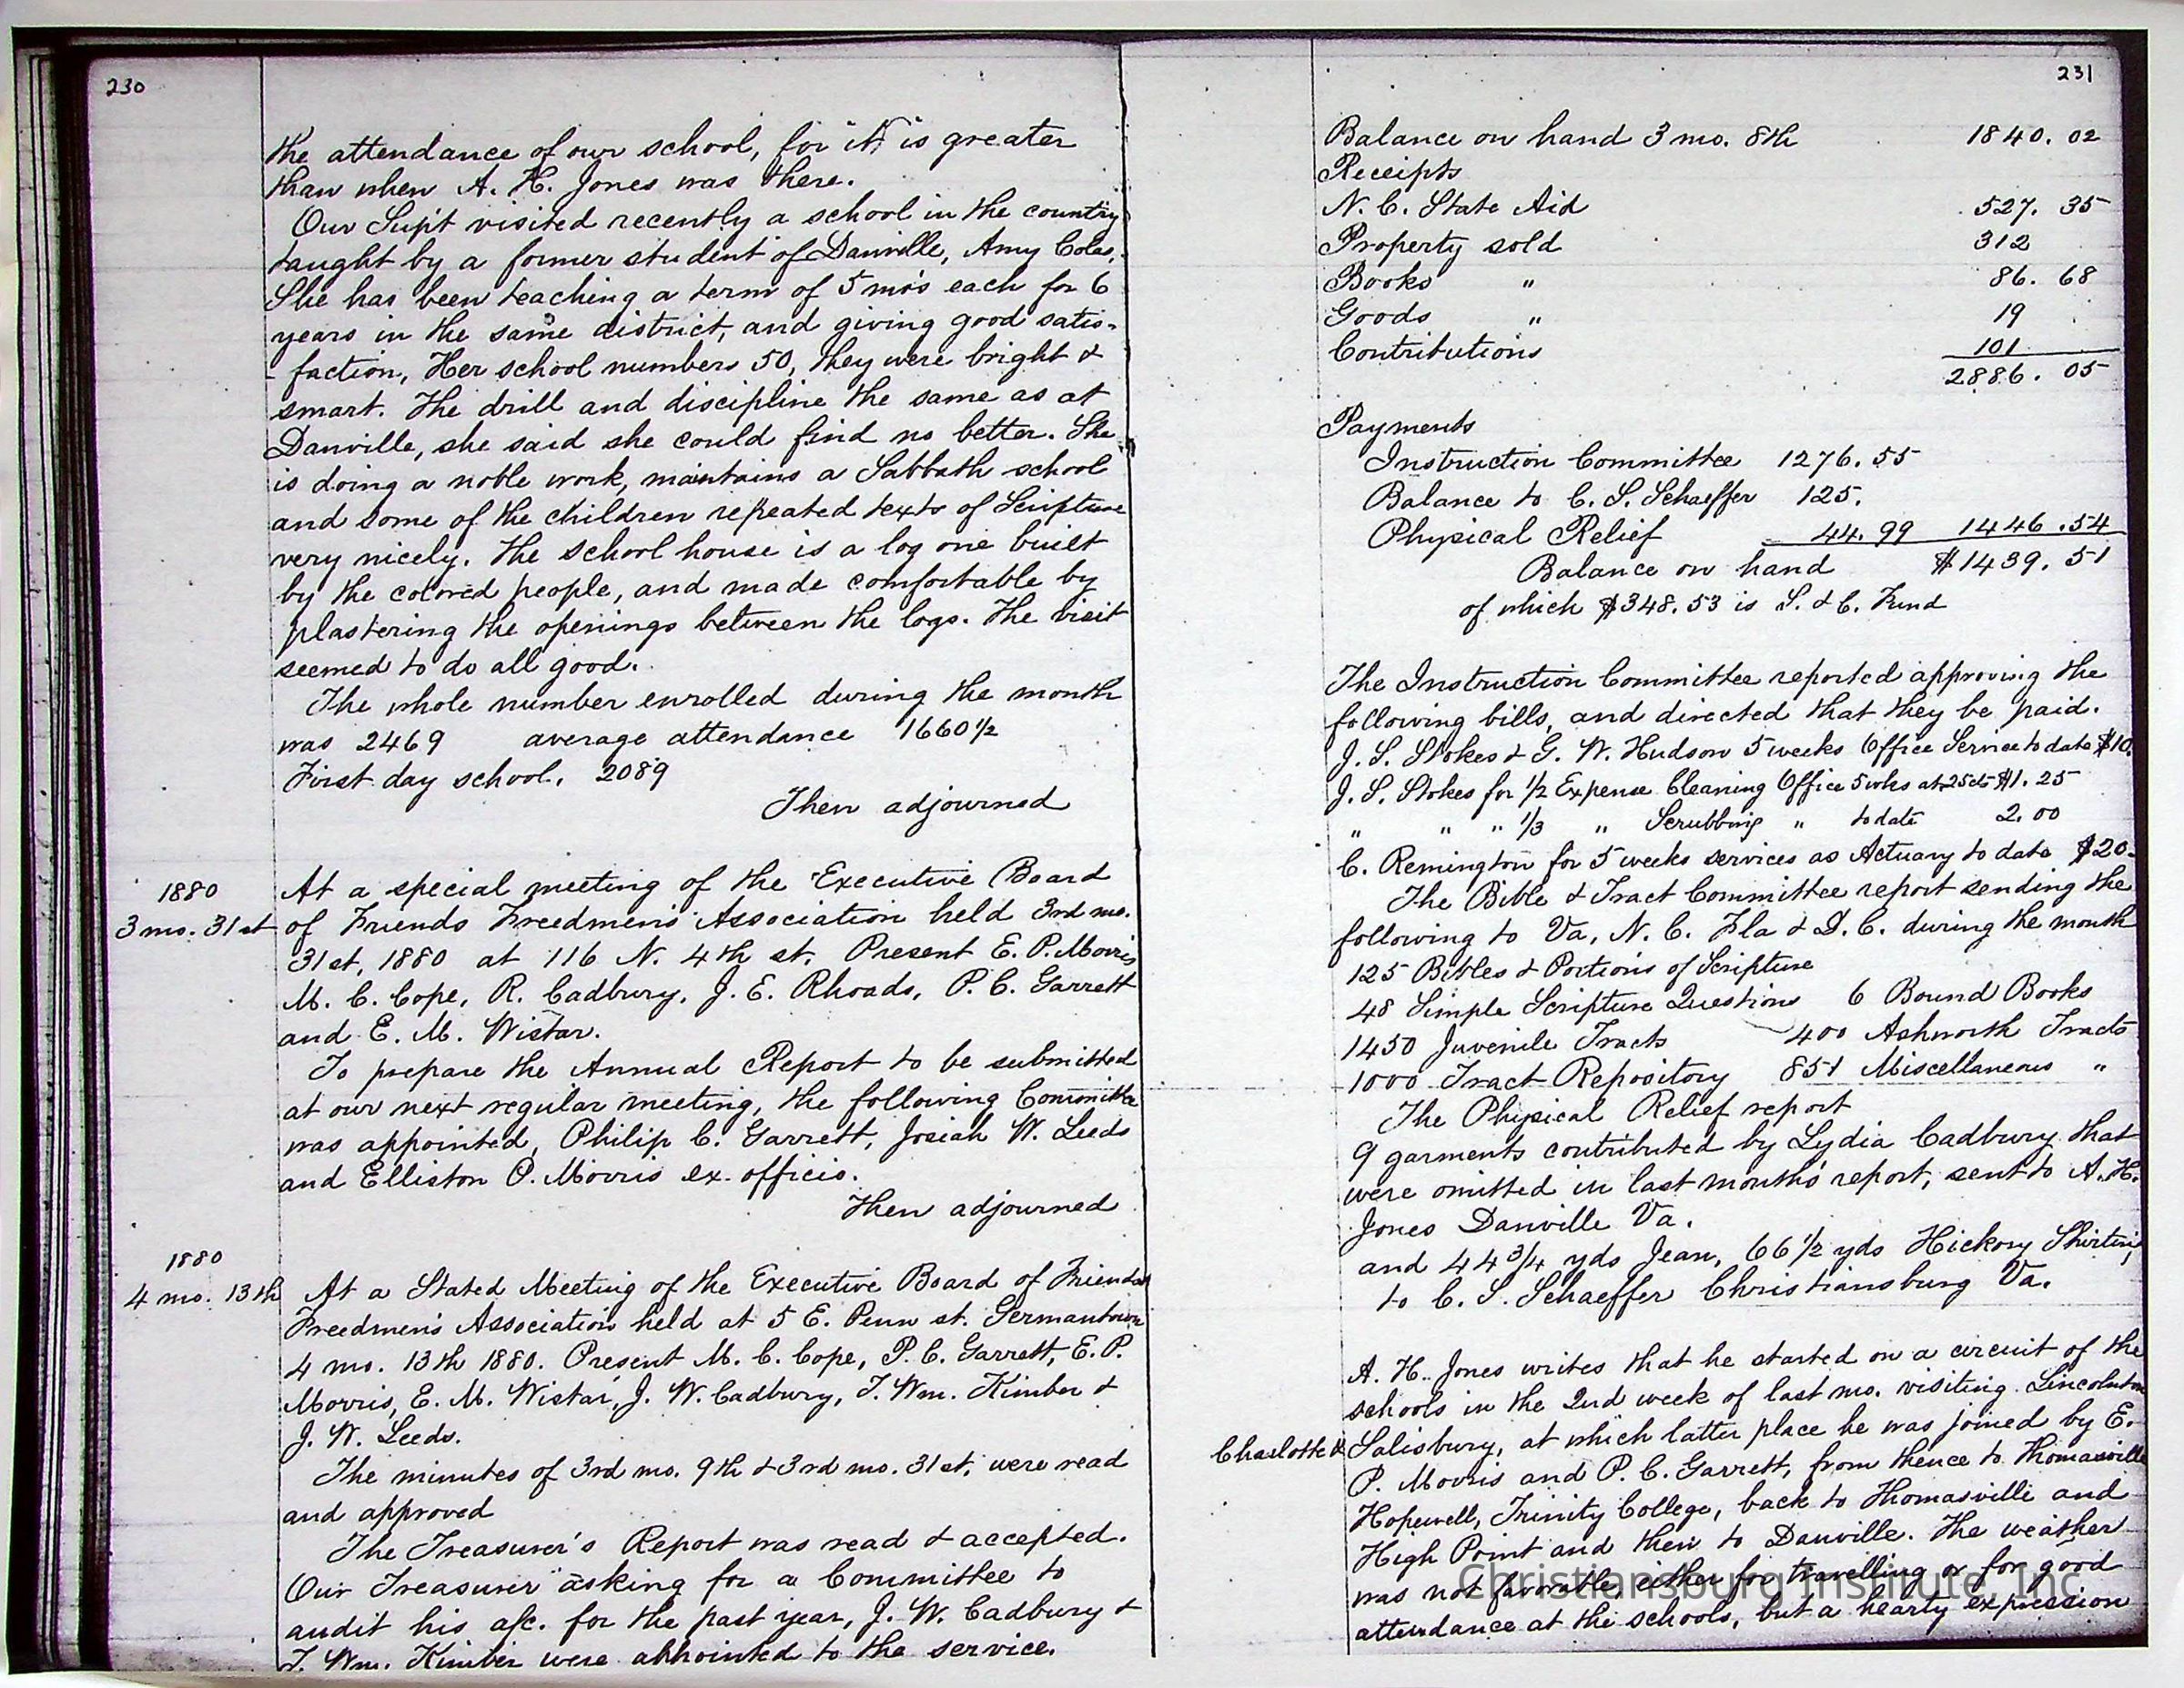 230
the attendance of our school, for it is greater
than when A. H. Jones was there.
Our Sup't visited recently a school in the country
taught by a former student of Danville, Amy Coles,
She has been teaching a term of 5 mo's each for 6
years in the same district, and giving good satis-
- faction, Her school numbers 50, they were bright &
smart. The drill and discipline the same as at
Danville, she said she could find no better. She
is doing a noble work, maintains a Sabbath school
and some of the children repeated texts of Scripture
very nicely. The school house is a log one built
by the colored people, and made comfortable by
plastering the openings between the logs. The visit
seemed to do all good.
The whole number enrolled during the month
was 2469 average attendance 1660 1/2
First day school. 2089
Then adjourned
1880
3 mo. 31st
At a special meeting of the Executive Board
of Friends Freedmen's Association held 3rd mo.
31st, 1880 at 116 N. 4th st. Present E. P. Morris
M. C. Cope, R. Cadbury, J. E. Rhoads, P. C. Garrett
and E. M. Wistar.
To prepare the Annual Report to be submitted
at our next regular meeting, the following Committee
was appointed, Philip C. Garrett, Josiah W. Leeds
and Elliston P. Morris ex. officio.
Then adjourned
1880
4 mo. 13th
At a Stated Meeting of the Executive Board of Friends
Freedmen's Association held at 5 E. Penn st. Germantown
4 mo. 13th 1880. Present M. C. Cope, P. C. Garrett, E. P.
Morris, E. M. Wistar, J. W. Cadbury, T. Wm. Kimber &
J. W. Leeds.
The minutes of 3rd mo. 9th & 3rd mo. 31st, were read
and approved
The Treasurer's Report was read & accepted.
Our Treasurer asking for a Committee to
audit his a/c. for the past year, J. W. Cadbury &
T. Wm. Kimber were appointed to the service.
231
Balance on hand 3 mo. 8th 1840. 02
Receipts
N. C. State Aid 527. 35
Property sold 312
Books " 86. 68
Goods " 19
Contributions 101
2886. 05
Payments
Instruction Committee 1276. 55
Balance to C. S. Schaeffer 125.
Physical Relief 44. 99 1446 .54
Balance on hand $1439. 51
of which $348. 53 is S. & C. Fund
The Instruction Committee reported approving the
following bills, and directed that they be paid.
J. S. Stokes & G. W. Hudson 5 weeks Office Service to date $10.
J. S. Stokes for 1/2 Expense Cleaning Office 5 wks at 25cts $1. 25
" " " 1/3 " Scrubbing " to date 2. 00
C. Remington for 5 weeks services as Actuary to date $20.
The Bible & Tract Committee report sending the
following to Va, N. C. Fla & D. C. during the month
125 Bibles & Portions of Scripture
48 Simple Scripture Questions 6 Bound Books
1450 Juvenile Tracts 400 Ashworth Tracts
1000 Tract Repository 851 Miscellaneous "
The Physical Relief report
9 garments contributed by Lydia Cadbury that
were omitted in last month's report, sent to A. H.
Jones Danville Va.
and 44 3/4 yds Jean, 66 1/2 yds Hickory Shirting
to C. S. Schaeffer Christiansburg Va.
A. H. Jones writes that he started on a circuit of the
schools in the 2nd week of last mo. visiting Lincolnton
Charlotte & Salisbury, at which latter place he was joined by E.
P. Morris and P. C. Garrett, from thence to Thomasville
Hopewell, Trinity College, back to Thomasville and
High Point and then to Danville. The weather
was not favorable either for travelling or for good
attendance at the schools, but a hearty expression
Christiansburg Institute, Inc.